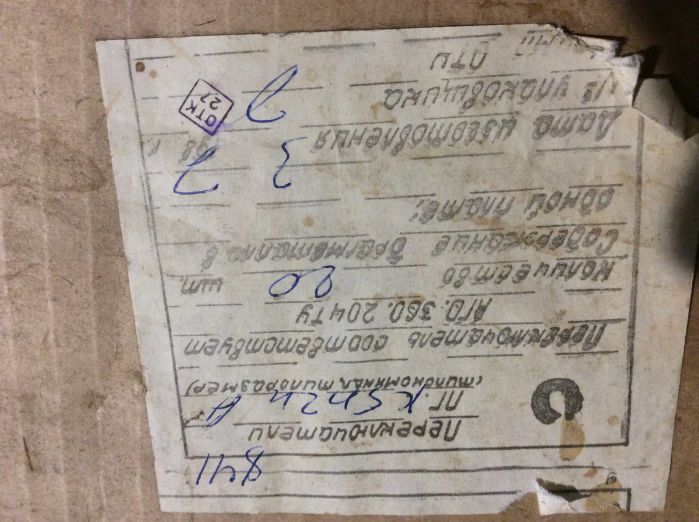 841
Переключатели
ПГ К5П2Н А
(типономинал, типоразмер)
Переключатель соответствует
АГ0.360.204ТУ
Количество 20 шт
Содержание драгметалла в
одной плате:
Дата изготовления 3 7
№ упаковщика 7
ОТК
27